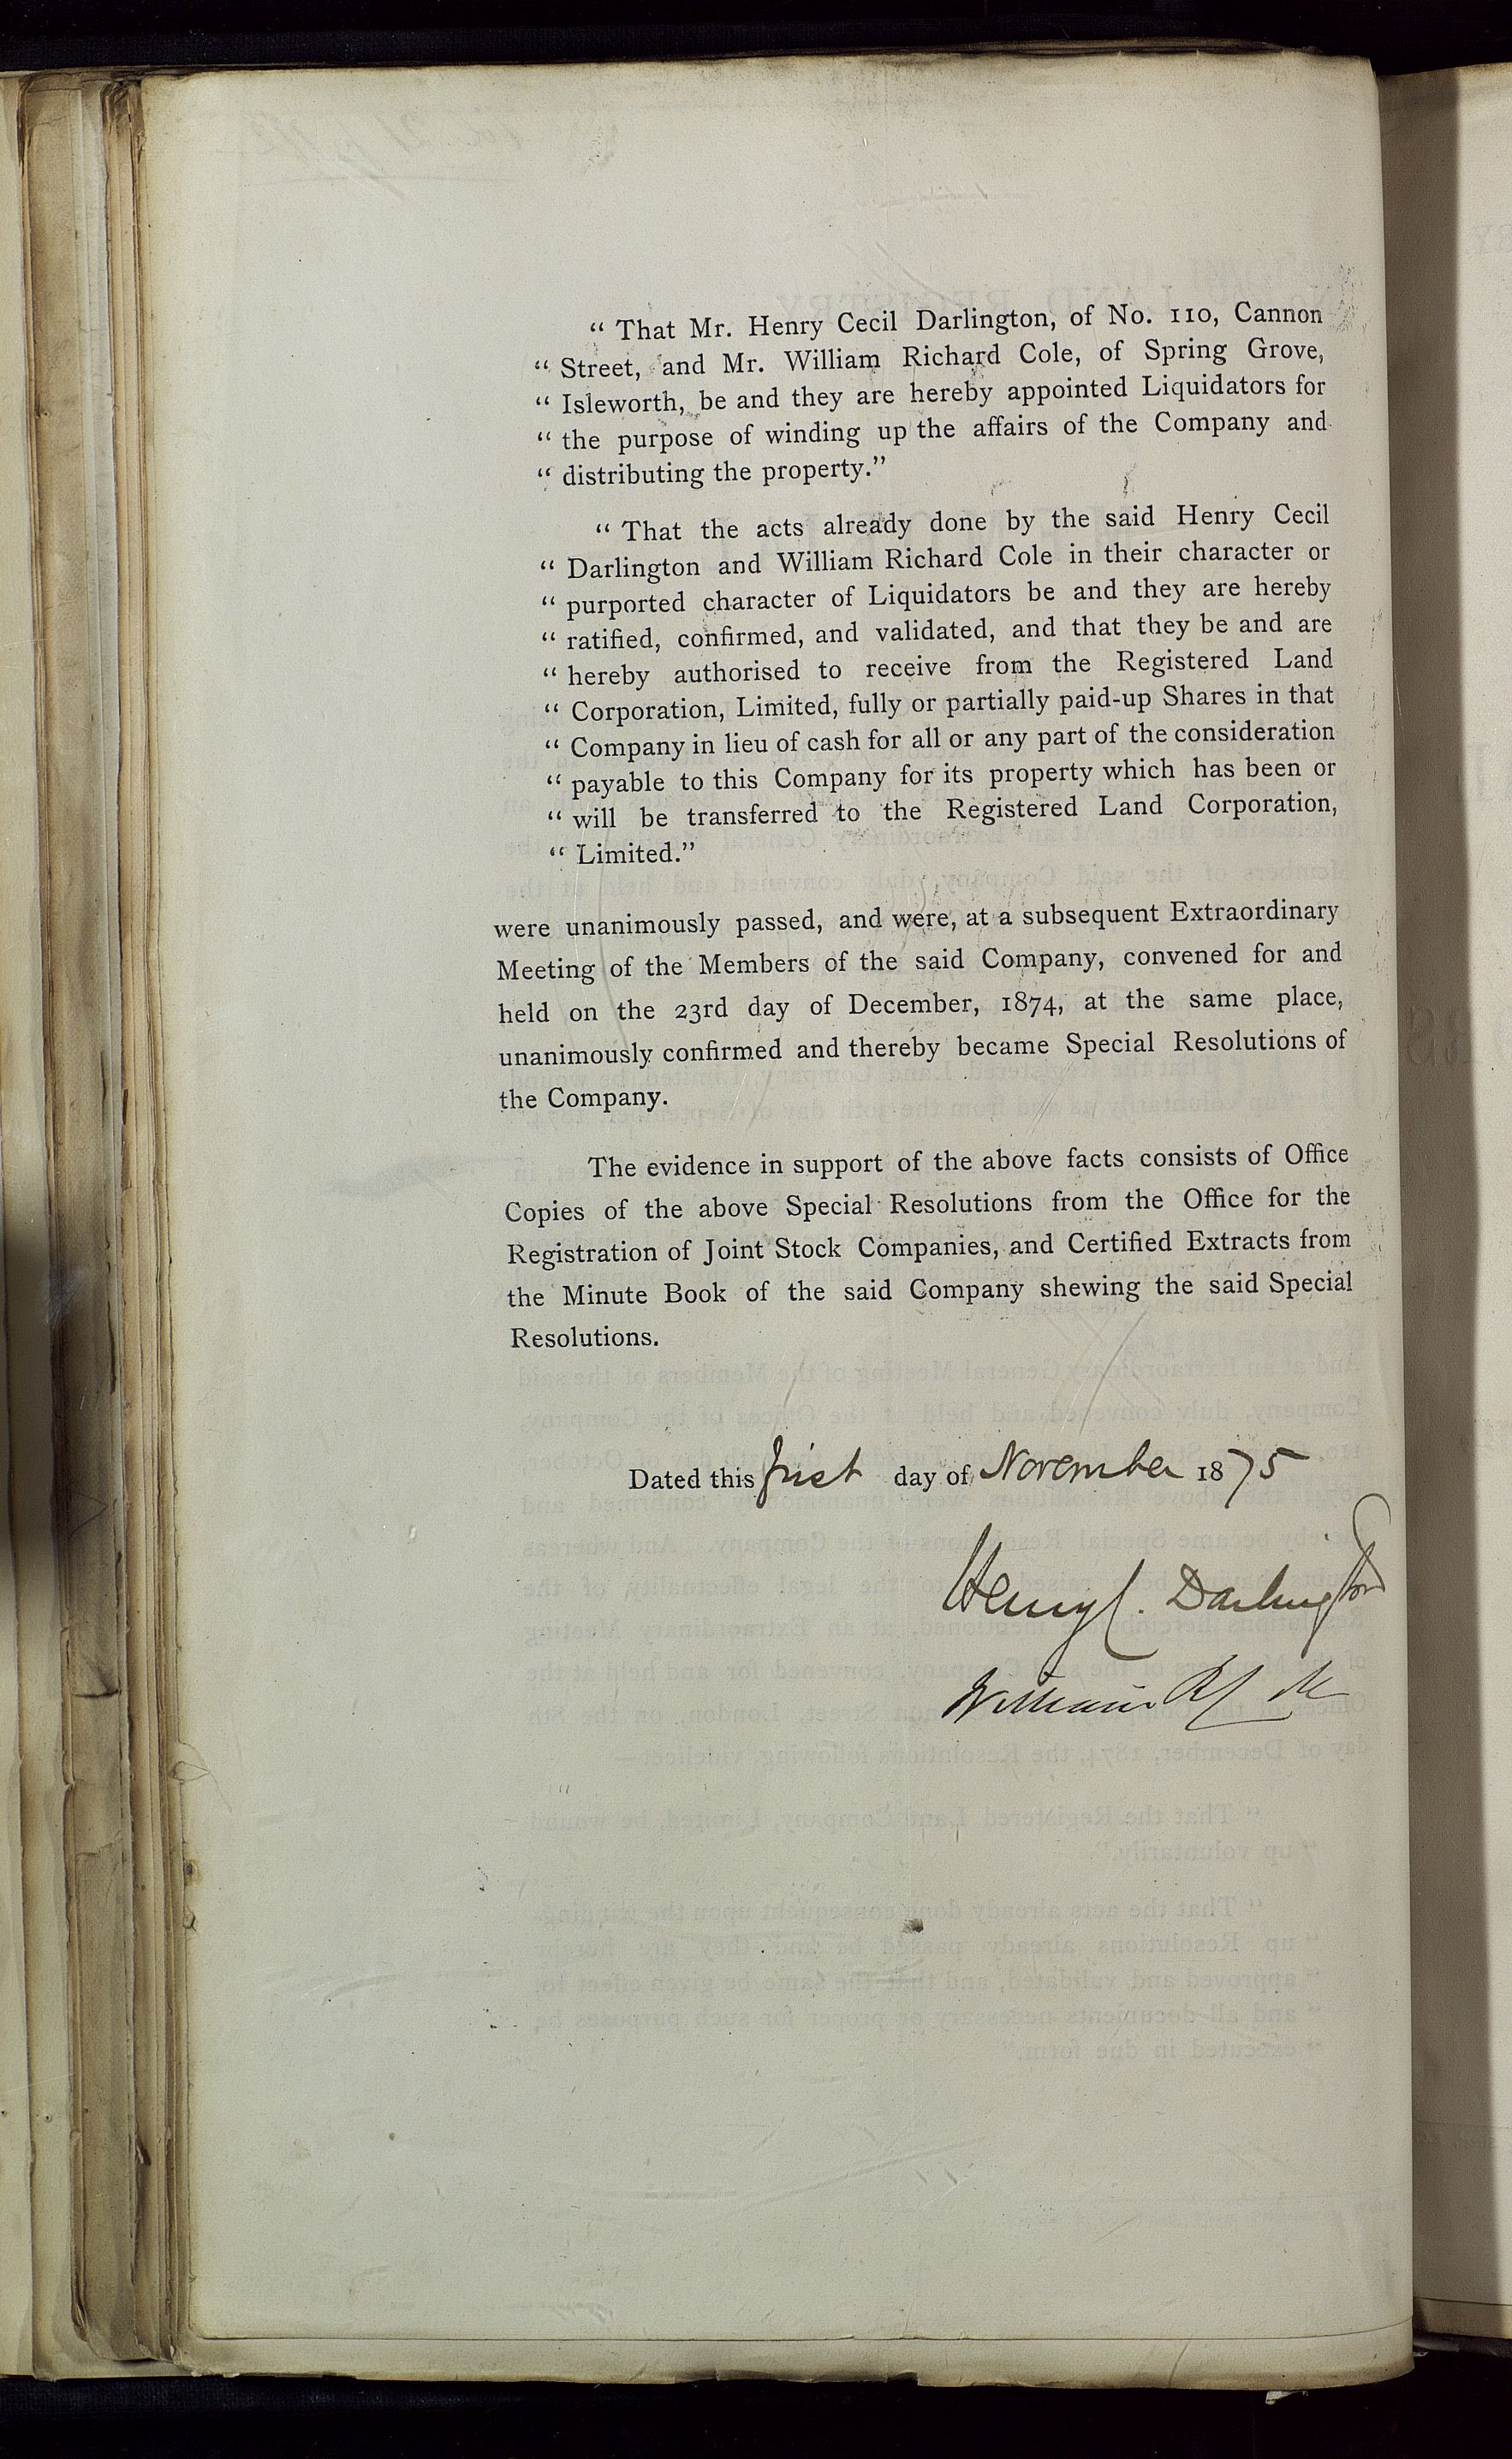 “ That Mr. Henry Cecil Darlington, of No. 110, Cannon
“ Street, and Mr. William Richard Cole, of Spring Grove,
“ Isleworth, be and they are hereby appointed Liquidators for
“ the purpose of winding up the affairs of the Company and
“ distributing the property.”
“ That the acts already done by the said Henry Cecil
“ Darlington and William Richard Cole in their character or
“ purported character of Liquidators be and they are hereby
“ ratified, confirmed, and validated, and that they be and are
“ hereby authorised to receive from the Registered Land
“ Corporation, Limited, fully or partially paid-up Shares in that
“ Company in lieu of cash for all or any part of the consideration
“ payable to this Company for its property which has been or
“ will be transferred to the Registered Land Corporation,
“ Limited.”
were unanimously passed, and were, at a subsequent Extraordinary
Meeting of the Members of the said Company, convened for and
held on the 23rd day of December, 1874, at the same place,
unanimously confirmed and thereby became Special Resolutions of
the Company.
The evidence in support of the above facts consists of Office
Copies of the above Special Resolutions from the Office for the
Registration of Joint Stock Companies, and Certified Extracts from
the Minute Book of the said Company shewing the said Special
Resolutions.
Dated this first day of November 1875
Henry C. Darlington
William R